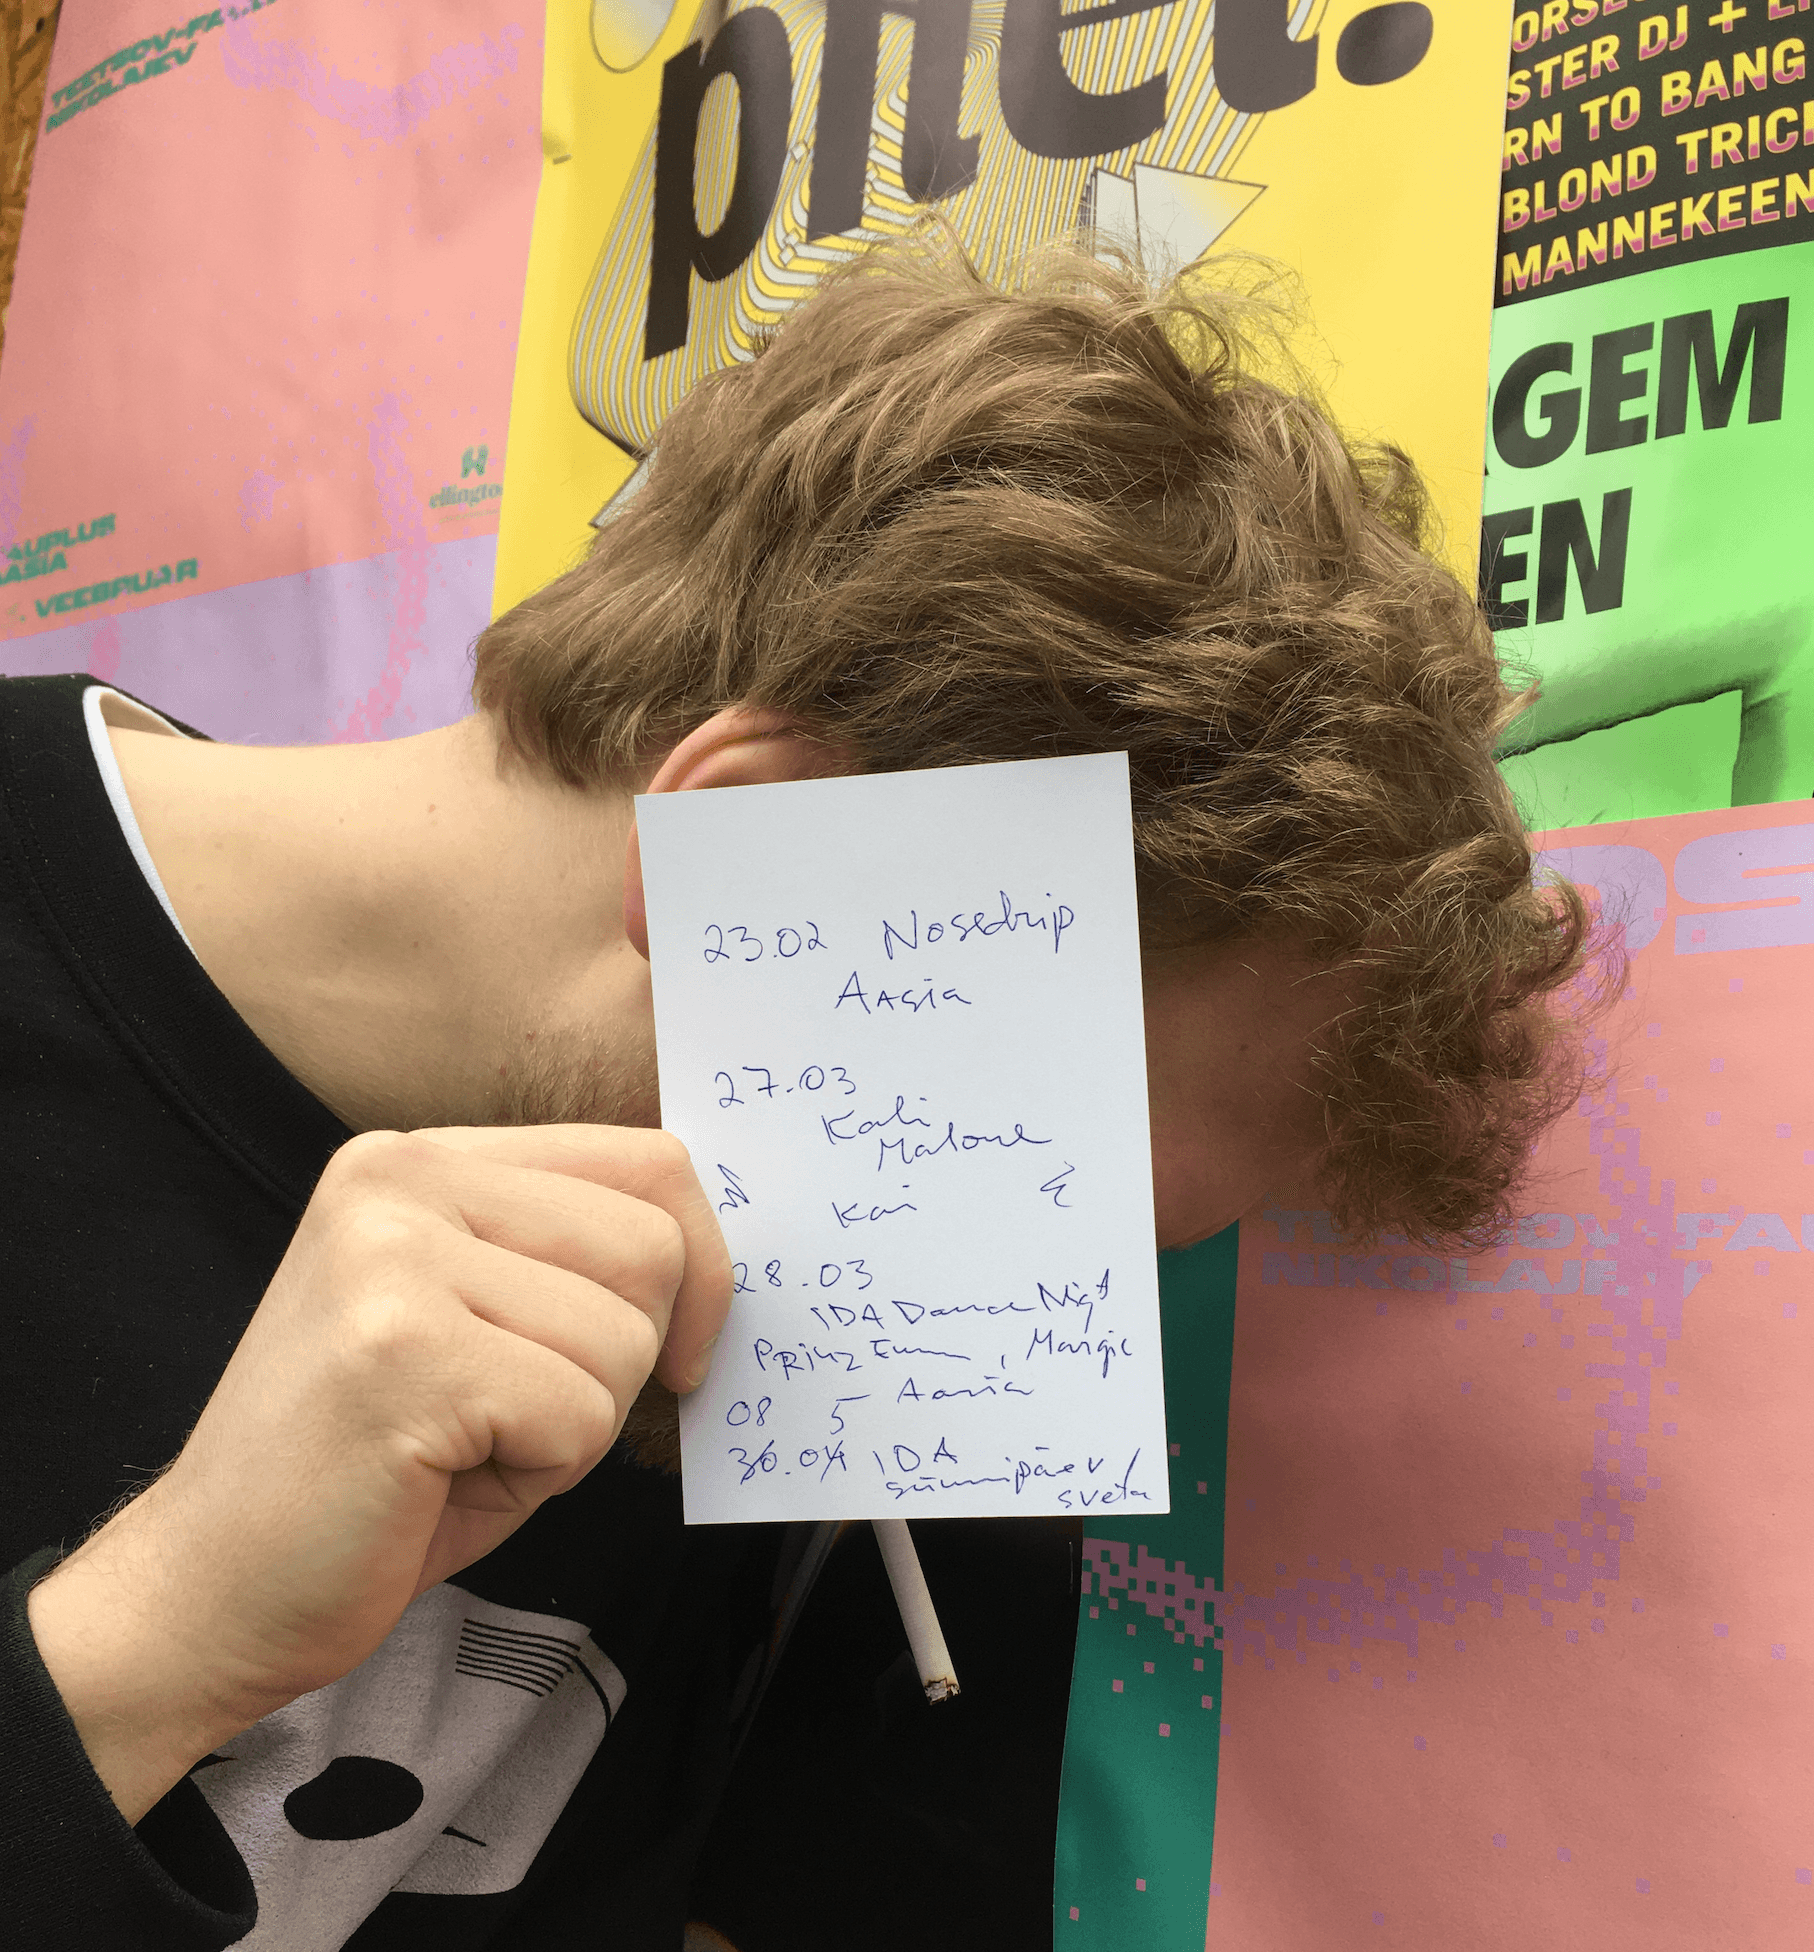 TEETSOV-FA
NIKOLAJEV
pilet.
STER DJ + L
RN TO BANG
BLOND TRIC
MANNEKEEN
GEM
EN
ellingto
AUPLUS
AASIA
VEEBRUAR
OS
NIKOLAJEV
23.02 Nosedrip
Aasia
27.03
Kali
Malone
Kai
28.03
IDA Dance Nigt
PRinz Emm , Margie
Aasia
08 5
30.04 IDA
sünnipäev /
sveta